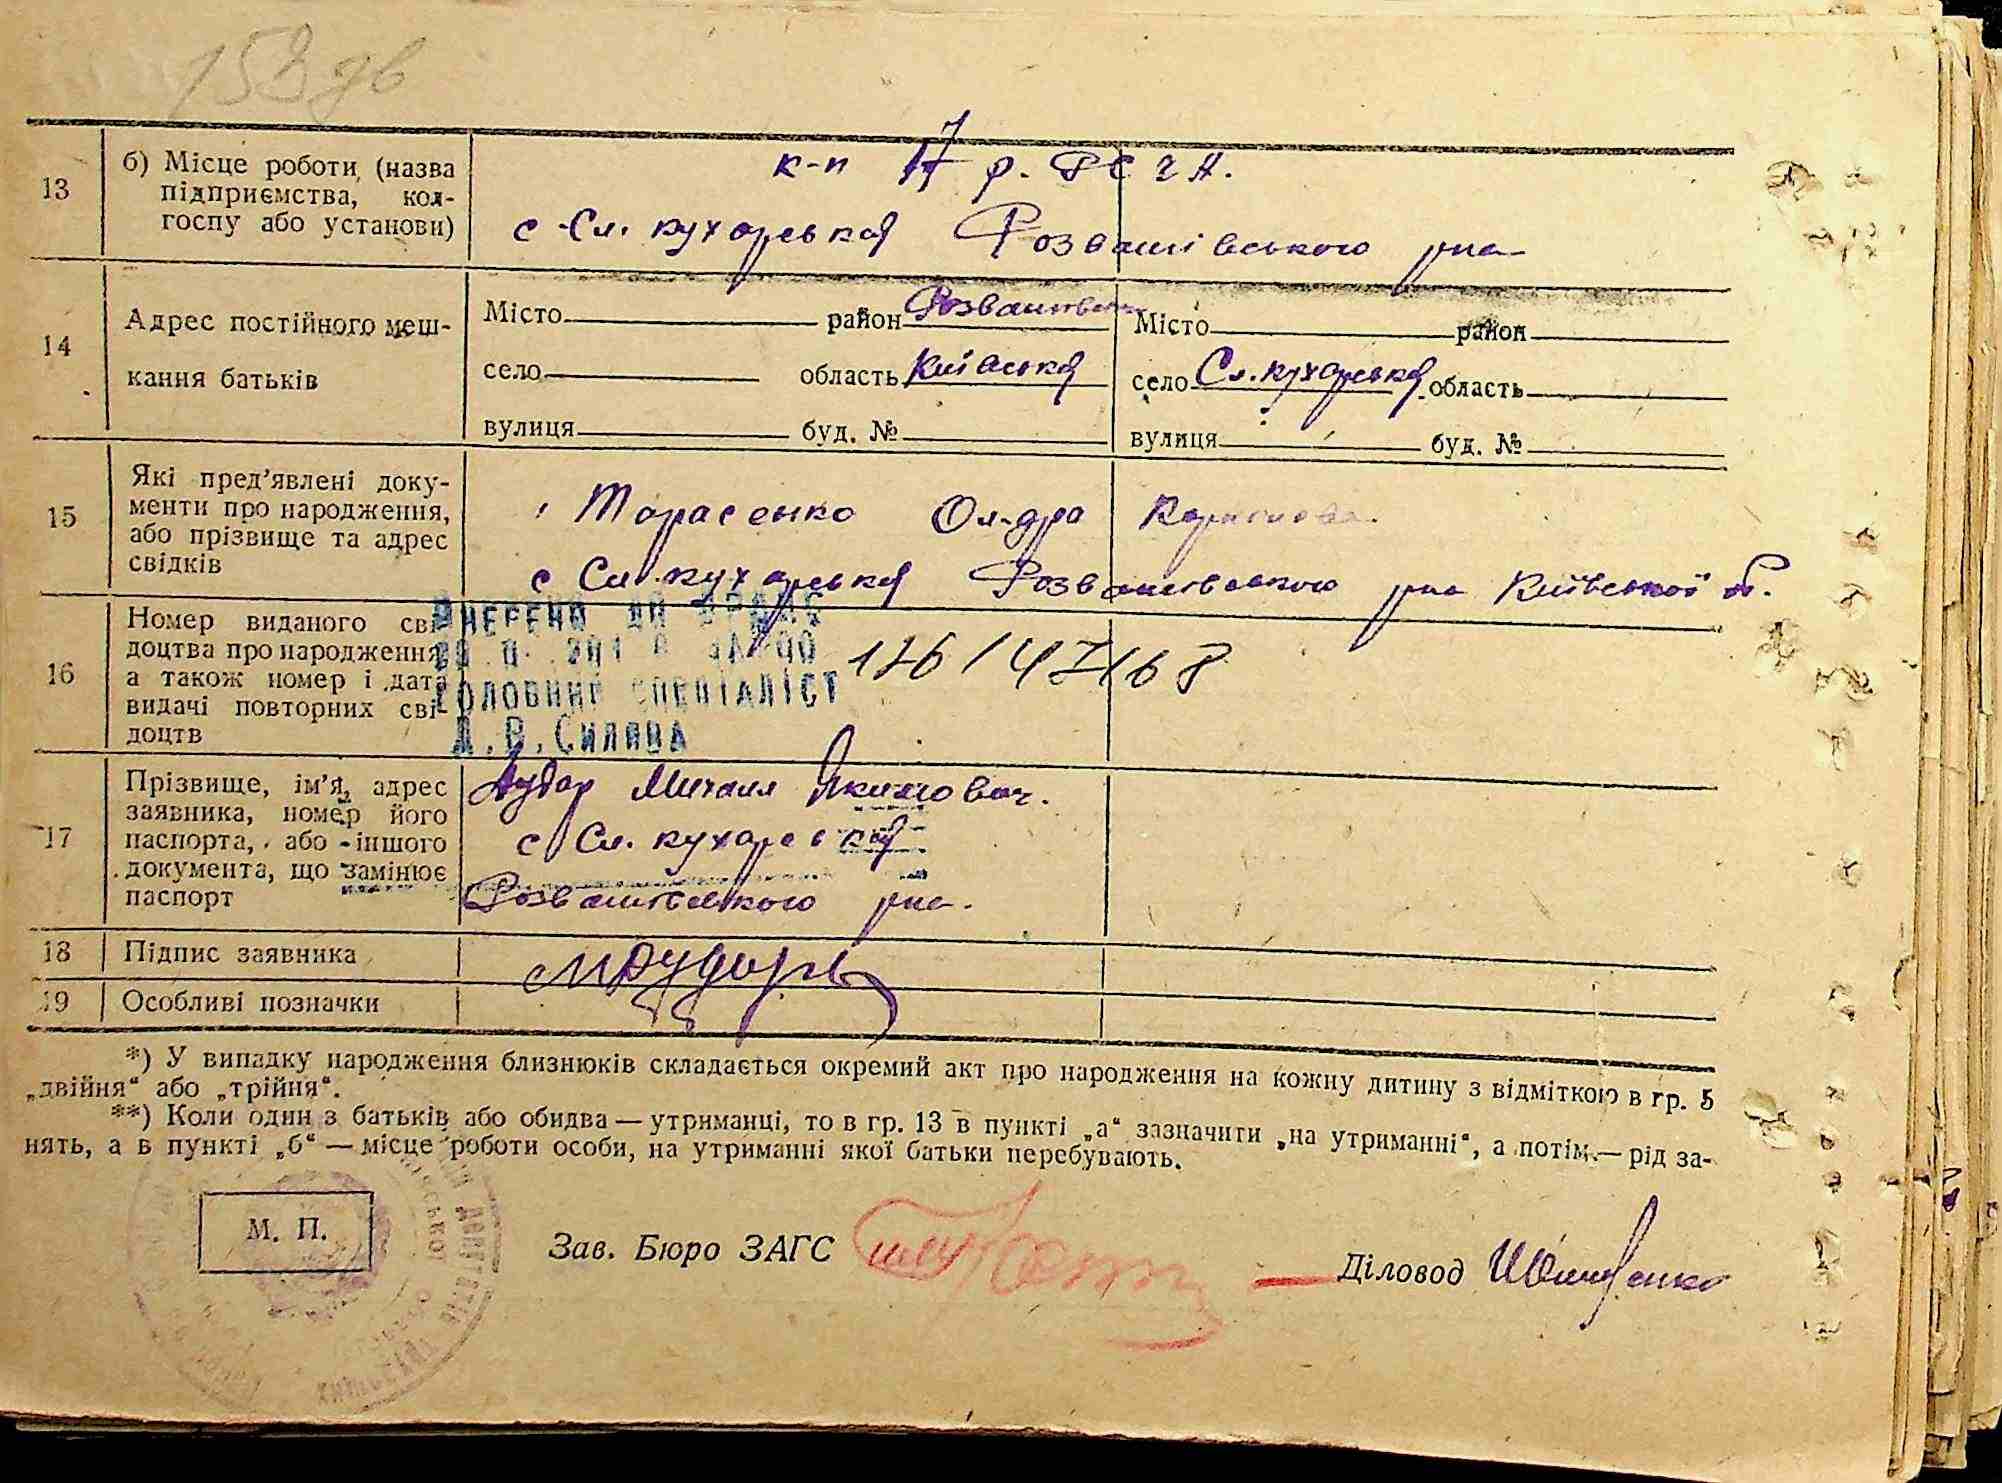 153 зв
13 б) Місце роботи (назва підприємства, кол-
госпу або установи)
к-п 17 р. РСЧА.
с Сл. кухарська Розважівського рна
14 Адрес постійного меш-
кання батьків
Місто район Розважівськ Місто район
село область Київська село Сл. кухарська область
вулиця буд. № вулиця буд. №
15 Які пред'явлені доку-
менти про народження,
або прізвище та адрес
свідків
Тарасенко Ол-дра
с Сл. кухарська Розважівського рна Київської
16 Номер виданого сві-
доцтва про народження
а також номер і дата
видачі повторних сві-
доцтв
ВНЕРЕНО ДО
176/47168
ГОЛОВНИЙ СПЕЦІАЛІСТ
17 Прізвище, ім'я, адрес
заявника, номер його
паспорта, або іншого
документа, що замінює
паспорт
Дудар Михаил Якимович.
с Сл. кухарська
Розважівського рна.
18 Підпис заявника
19 Особливі позначки
*) У випадку народження близнюків складається окремий акт про народження на кожну дитину з відміткою в гр. 5
„двійня“ або „трійня“.
**) Коли один з батьків або обидва — утриманці, то в гр. 13 в пункті „а“ зазначити „на утриманні“, а потім — рід за-
нять, а в пункті „б“ — місце роботи особи, на утриманні якої батьки перебувають.
М. П.
Зав. Бюро ЗАГС
Діловод